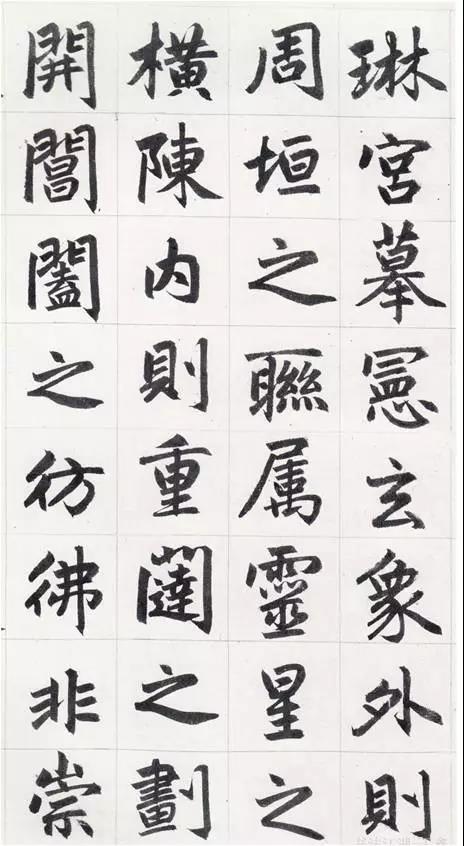 琳宮摹憲玄象外則
周垣之聯属靈星之
横陳内則重闥之劃
開閶闔之彷彿非崇